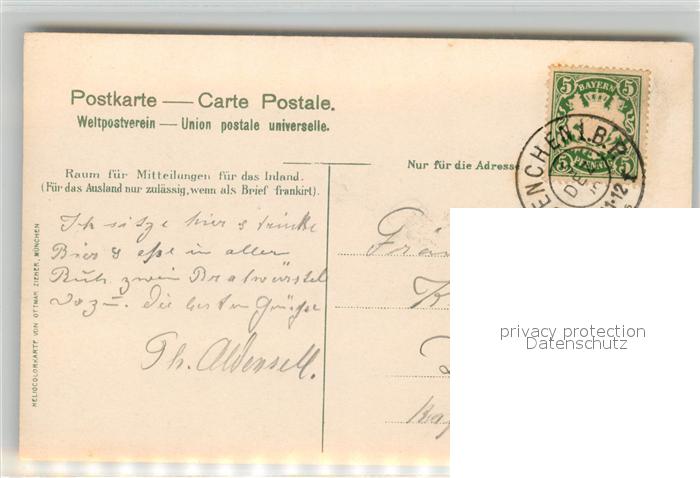 Postkarte — Carte Postale.
Weltpostverein — Union postale universelle.
5 BAYERN 5
5 PFENNIG 5
Nur für die Adresse
Raum für Mitteilungen für das Inland.
(Für das Ausland nur zulässig, wenn als Brief frankirt).
Ich sitze hier & trinke
Bier & esse in aller
Ruh zwei Bratwürstel
dazu. Die besten Grüße
Th.
HELIOCOLORKARTE VON OTTMAR ZIEHER, MÜNCHEN
privacy protection
Datenschutz